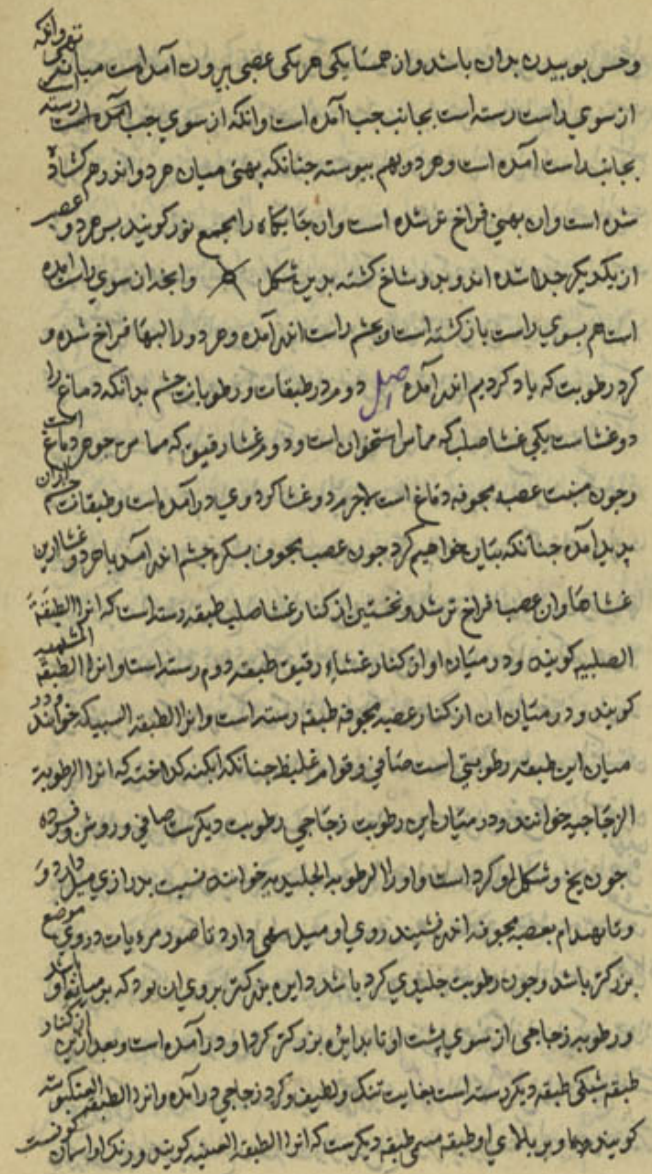 و حس بوییدن بدان باشد و ازجمسا یکی هر یکی عصبی برون آمده است میانه تهی و آنکه
از سوی راست رسته است بجانب جب آمده است و انکه از سوی جب رسته است
بجانب راست آمده است و هر دو بهم بیوسته جنانکه بهنی میان هر دو اندر هم کشاده
شده است و ان بهنی فراخ تر شده است و ان جایکاه را مجمع نور کویند بس هر دو عصب
از یکدیکر جدا شده اند و بدو شاخ کشته بدین شکل و انجه از سوی راست آمده
است هم بسوی راست باز کشته است و بجشم راست اندر آمده و هر دو را لبها فراخ شده و
کرد رطوبت که یاد کردیم اندر آمده اصل دوم در طبقات و رطوبات جشم بدانکه دماغ را
دو غشاست یکی غشا صلب که مماس استخوان است و دوم غشا رقیق که مماس جوهر دماغ است
و جون منبت عصبه مجوفه دماغ است لاجرم دو غشا کرد وی در آمده است و طبقات جشم از ان
بدید آمده جنانکه بیان خواهیم کرد جون عصب مجوف بسکره جشم اندر آمد با هر دو غشا ازین
غشاها و ان عصبا فراخ تر شد و نخستین از کنار غشا صلب طبقه رسته است که انرا الطبقة
الصلبیه کویند و در میان او از کنار غشاء رقیق طبقه دوم رسته است و انرا الطبقه المشیمیه
کویند و در میان ان از کنار عصبه مجوفه طبقه رسته است و انرا الطبقه الشبیکه خوانند و در
میان این طبقه رطوبتی است صافی و قوام غلیظ جنانکه ابکینه کداخته که انرا الرطوبة
الزجاجیه خوانند و در میان این رطوبت زجاجی رطوبت دیکرست صافی و روشن و فسرده
جون یخ و شکل او کرد است و او را الرطوبه الجلیدیه خوانند نسبت بدرازی میل دارد و
و تا بهندام بعصبه مجوفه اندر نشیند روی او میل بهی دارد تا صور مرءیات در وی موضع
بزرکتر باشد و جون رطوبت جلیدی کرد باشد دایره بزرکتر بروی ان بود که بر میانه او باشد
و رطوبه زجاجی از سوی بشت او تا بدایره بزرکتر کرد او در آمده است و بعد ازین از کنار
طبقه شبکی طبقه دیکر رسته است بغایت تنک و لطیف و کرد زجاجی در آمده و انرا الطبقه العنکبوتیه
کویند و بر بالای او طبقه مسمی طبقه دیکرست که انرا الطبقة العنبیه کویند و رنک او اسمان کونست